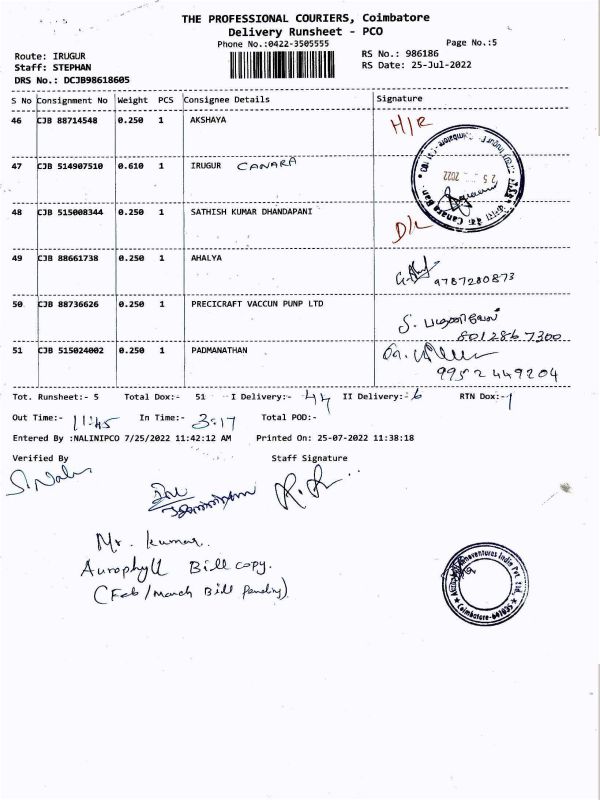 THE PROFESSIONAL COURIERS, Coimbatore
Delivery Runsheet - PCO
Phone No.:0422-3505555
Page No.:5
Route: IRUGUR
RS No.: 986186
Staff: STEPHAN
RS Date: 25-Jul-2022
DRS No.: DCJB98618605
S No Consignment No Weight PCS Consignee Details Signature
46 CJB 88714548 0.250 1 AKSHAYA H/R
47 CJB 514907510 0.610 1 IRUGUR CANARA
25 2022
Canara
48 CJB 515008344 0.250 1 SATHISH KUMAR DHANDAPANI D/L
49 CJB 88661738 0.250 1 AHALYA 9787280873
50 CJB 88736626 0.250 1 PRECICRAFT VACCUN PUNP LTD
8012867300
51 CJB 515024002 0.250 1 PADMANATHAN
9952449204
Tot. Runsheet:- 5 Total Dox:- 51 I Delivery:- 44 II Delivery:- 6 RTN Dox:- 1
Out Time:- 11:45 In Time:- 3:17 Total POD:-
Entered By :NALINIPCO 7/25/2022 11:42:12 AM Printed On: 25-07-2022 11:38:18
Verified By Staff Signature
Mr. Kumar.
Aurophyll Bill copy.
(Feb/March Bill Pending)
India Pvt. Ltd.
Coimbatore